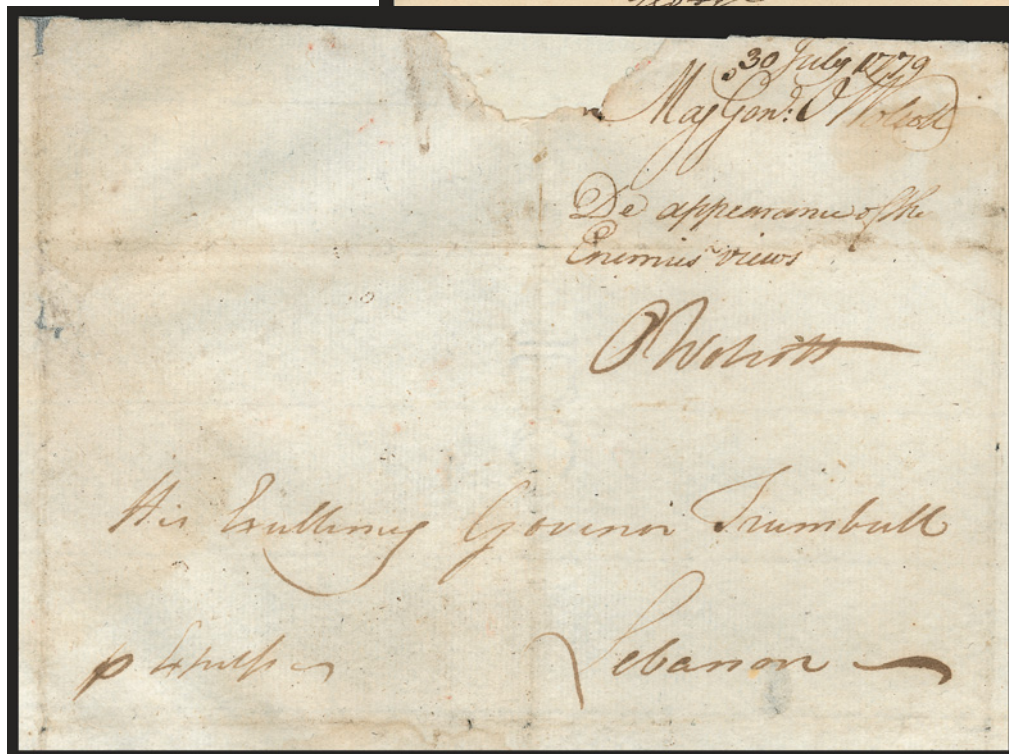 30 July 1779
Maj Genl: O Wolcott
De appearance of the
Enimies views
O Wolcott
His Excellency Governor Trumbull
p Express
Lebanon